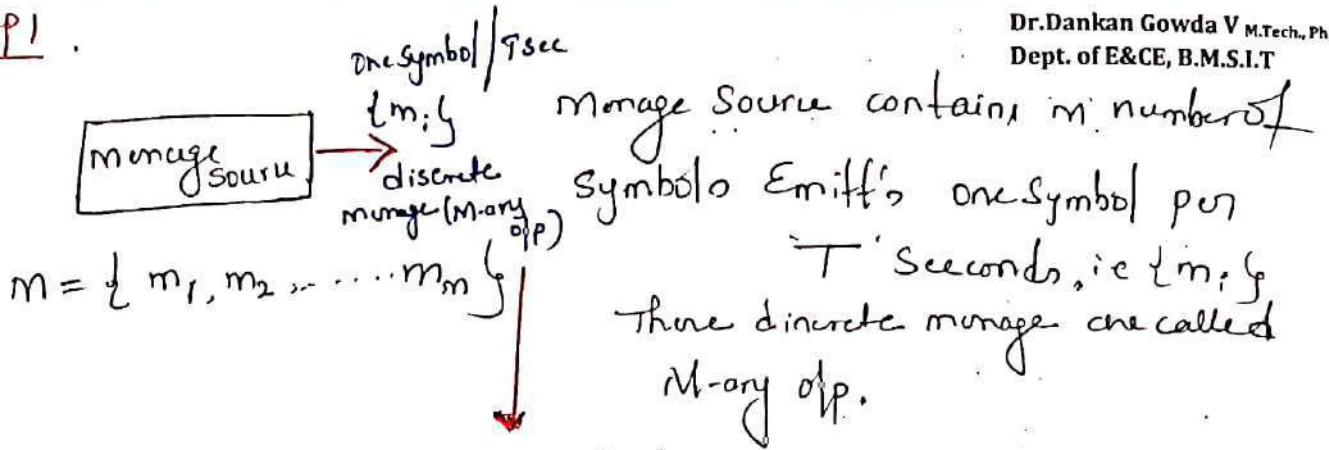 P1 .
Dr.Dankan Gowda V M.Tech., Ph
Dept. of E&CE, B.M.S.I.T
one symbol/Tsec
{mi}
message source
discrete
message (M-ary o/p)
m = { m1, m2, ..... mm }
message Source contains 'm' number of
Symbols Emitt's one Symbol per
'T' Seconds, ie {mi}
These discrete message are called
M-ary o/p.